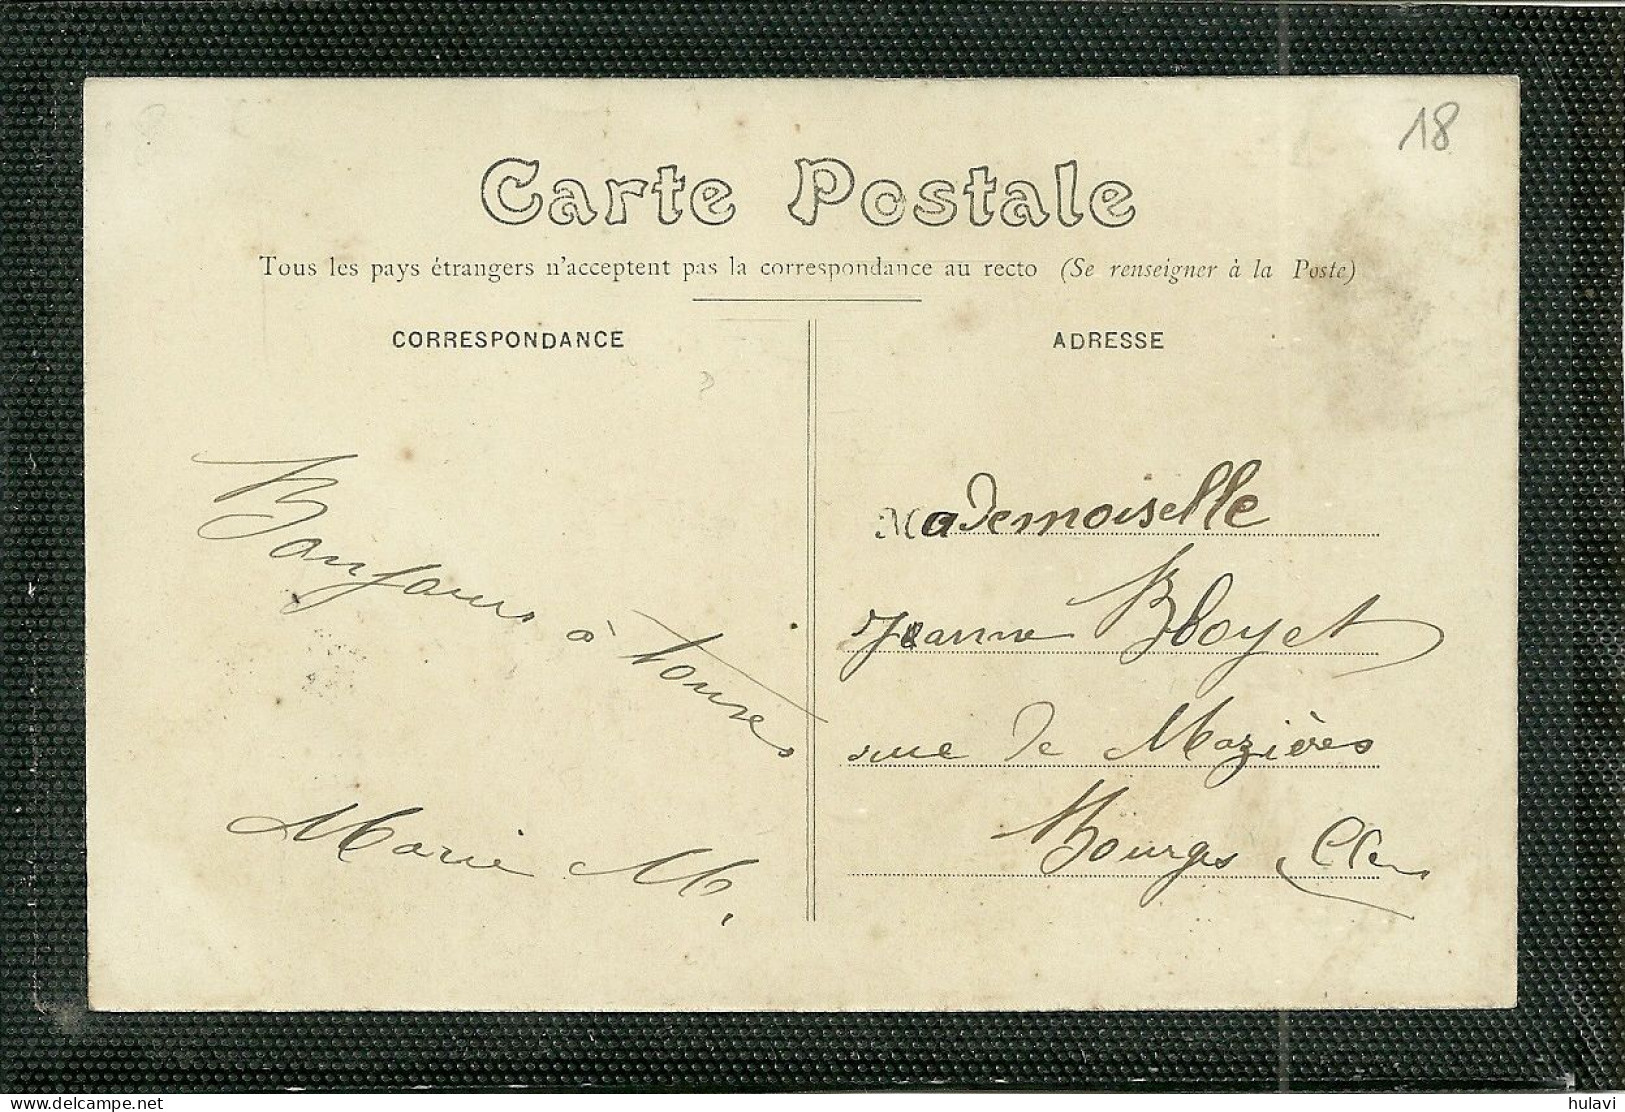 18
Carte Postale
Tous les pays étrangers n'acceptent pas la correspondance au recto (Se renseigner à la Poste)
CORRESPONDANCE
Bonjours à toutes
Marie M.
ADRESSE
Mademoiselle
Jeanne Bloyet
rue de Mazières
Bourges Cher
delcampe.net
hulavi